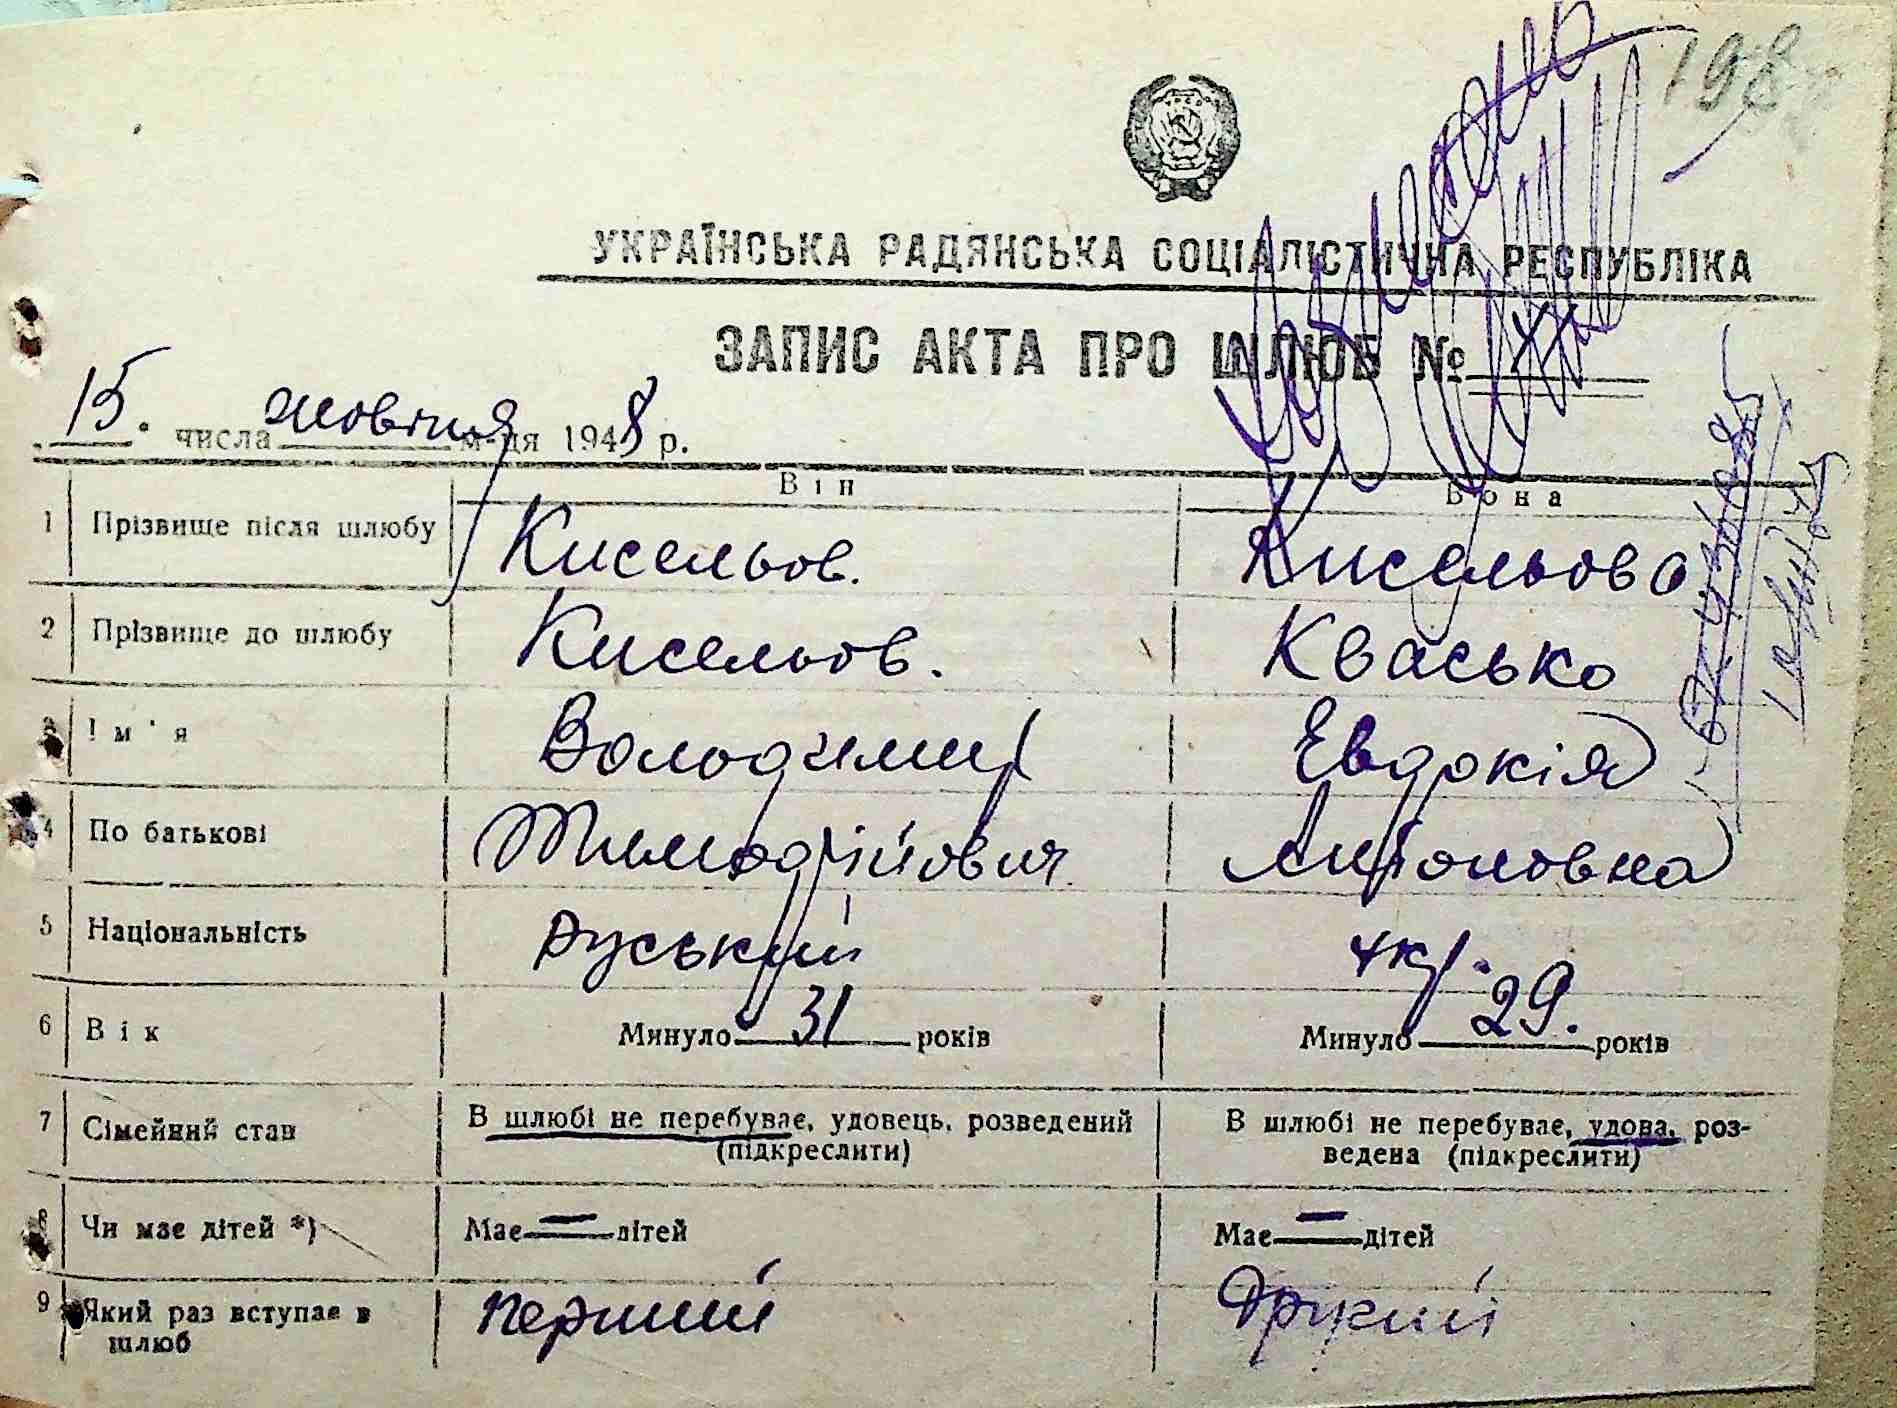 198
УКРАЇНСЬКА РАДЯНСЬКА СОЦІАЛІСТИЧНА РЕСПУБЛІКА
ЗАПИС АКТА ПРО ШЛЮБ №
15. числа жовтня м-ця 1948 р.
Він Вона
1 Прізвище після шлюбу Кисельов. Кисельова
2 Прізвище до шлюбу Кисельов. Квасько
3 Ім'я Володимир Евдокія
4 По батькові Тимофійович Антоновна
5 Національність руський укр.
6 Вік Минуло 31 років Минуло 29. років
7 Сімейний став В шлюбі не перебуває, удовець, розведений (підкреслити) В шлюбі не перебуває, удова, роз-
ведена (підкреслити)
8 Чи має дітей *) Має — дітей Має — дітей
9 Який раз вступає в шлюб перший Другий